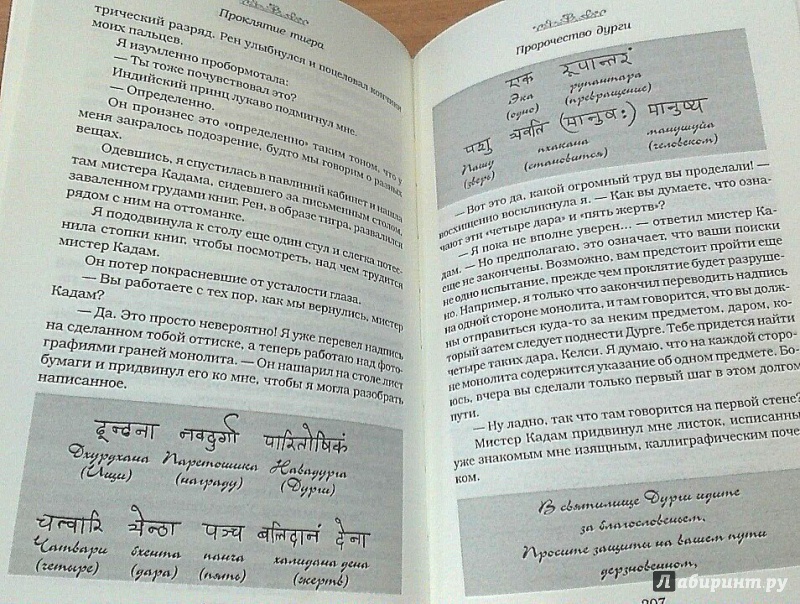 Проклятие тигра
трический разряд. Рен улыбнулся и поцеловал кончики
моих пальцев.
Я изумленно пробормотала:
— Ты тоже почувствовал это?
Индийский принц лукаво подмигнул мне.
— Определенно.
Он произнес это «определенно» таким тоном, что у
меня закралось подозрение, будто мы говорим о разных
вещах.
Одевшись, я спустилась в павлиний кабинет и нашла
там мистера Кадама, сидевшего за письменным столом,
заваленном грудами книг. Рен, в образе тигра, развалился
рядом с ним на оттоманке.
Я пододвинула к столу еще один стул и слегка потес-
нила стопки книг, чтобы посмотреть, над чем трудится
мистер Кадам.
Он потер покрасневшие от усталости глаза.
— Вы работаете с тех пор, как мы вернулись, мистер
Кадам?
— Да. Это просто невероятно! Я уже перевел надпись
на сделанном тобой оттиске, а теперь работаю над фото-
графиями граней монолита. — Он нашарил на столе лист
бумаги и придвинул его ко мне, чтобы я могла разобрать
написанное.
नवदुर्गा पारितोषिकं
Дхурдхана Паретошика Навадурга
(Ищи) (награду) (Дурги)
चत्वारि पञ्च बलिदानं देना
Чатвари бхента панча халидана дена
(четыре) (дара) (пять) (жертв)
Пророчество дурги
एक रूपान्तरं
Эка рупантара
(одно) (превращение)
पशु भवति (मानुषः) मानुष्य
Пашу пхакана манушуйа
(зверь) (становится) (человеком)
— Вот это да, какой огромный труд вы проделали! —
восхищенно воскликнула я. — Как вы думаете, что озна-
чают эти «четыре дара» и «пять жертв»?
— Я пока не вполне уверен... — ответил мистер Ка-
дам. — Но предполагаю, это означает, что ваши поиски
еще не закончены. Возможно, вам предстоит пройти еще
не одно испытание, прежде чем проклятие будет разруше-
но. Например, я только что закончил переводить надпись
на одной стороне монолита, и там говорится, что вы долж-
ны отправиться куда-то за неким предметом, даром, ко-
торый затем следует поднести Дурге. Тебе придется найти
четыре таких дара, Келси. Я думаю, что на каждой сторо-
не монолита содержится указание об одном предмете. Бо-
юсь, вчера вы сделали только первый шаг в этом долгом
пути.
— Ну ладно, так что там говорится на первой стене?
Мистер Кадам придвинул мне листок, исписанный
уже знакомым мне изящным, каллиграфическим почер-
ком.
В святилище Дурги идите
за благословеньем,
Просите защиты на вашем пути
дерзновенном,
207
Лабиринт.ру